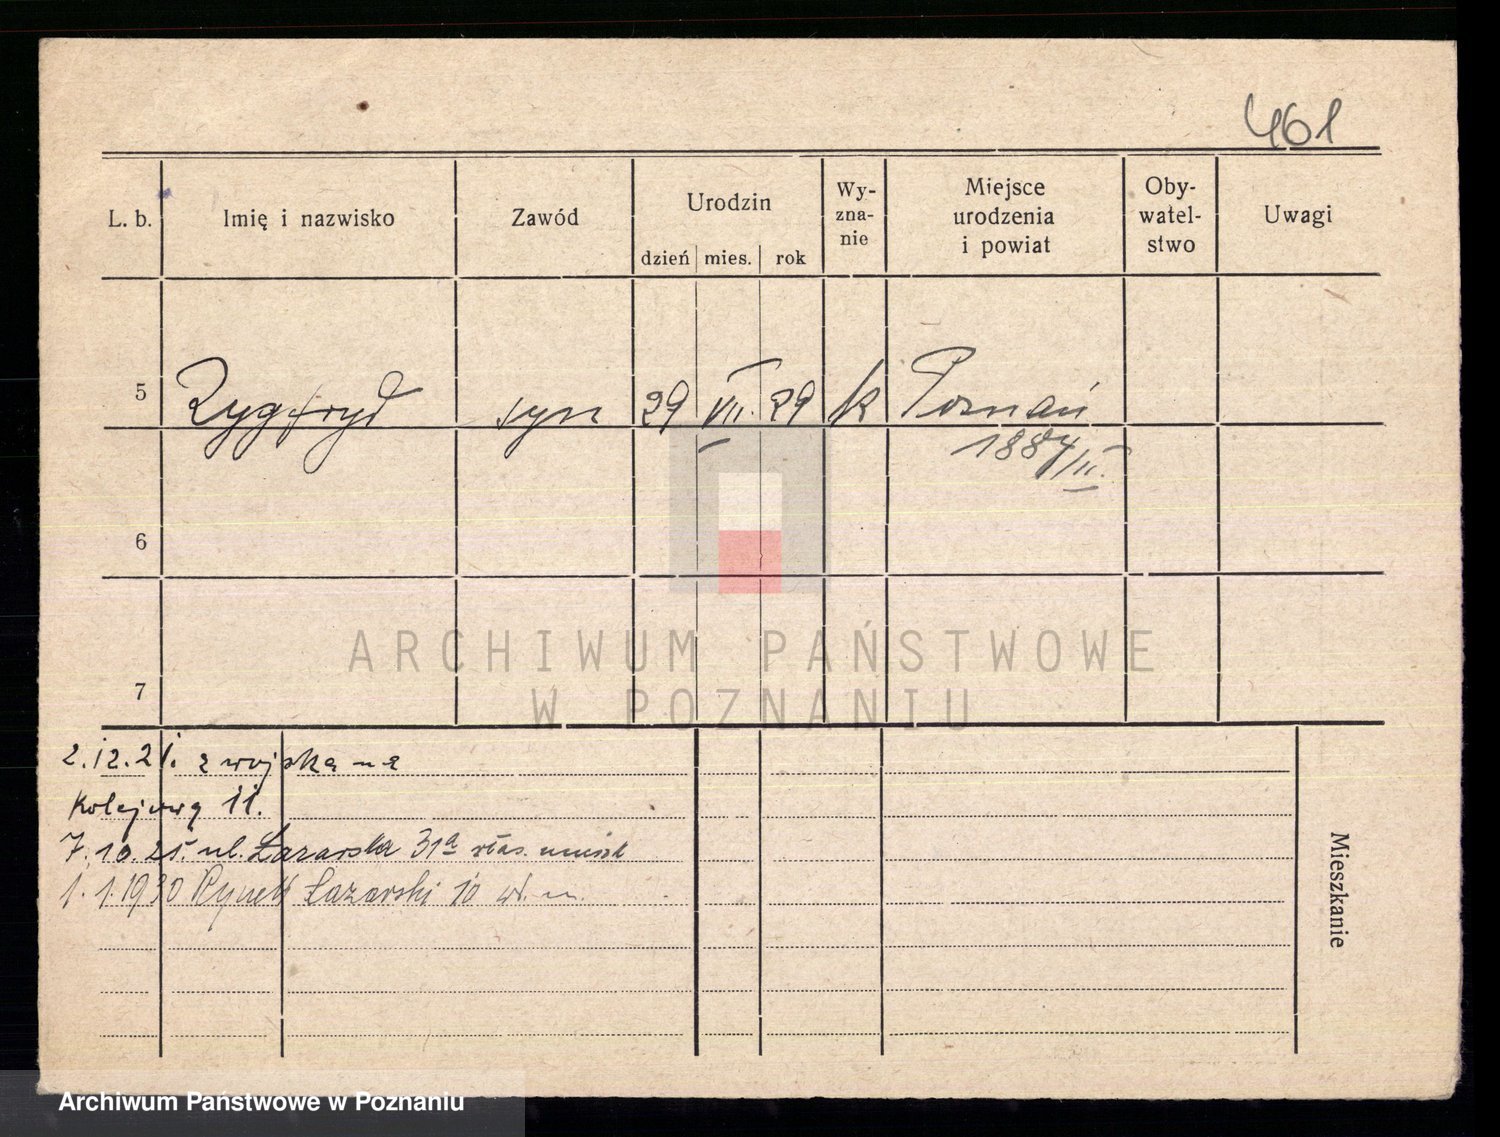 461
L. b. Imię i nazwisko Zawód Urodzin dzień mies. rok Wy-zna-nie Miejsce urodzenia i powiat Oby-watel-stwo Uwagi
5 Zygfryd syn 29 VII. 29 k Poznań
1884/II.
6
ARCHIWUM PAŃSTWOWE
W POZNANIU
7
2.12.21. z wojska na
Kolejową 11.
7.10.25. ul. Łazarska 31a włas. mieszk
1.1.1930 Rynek Łazarski 10 wł. m.
Mieszkanie
Archiwum Państwowe w Poznaniu